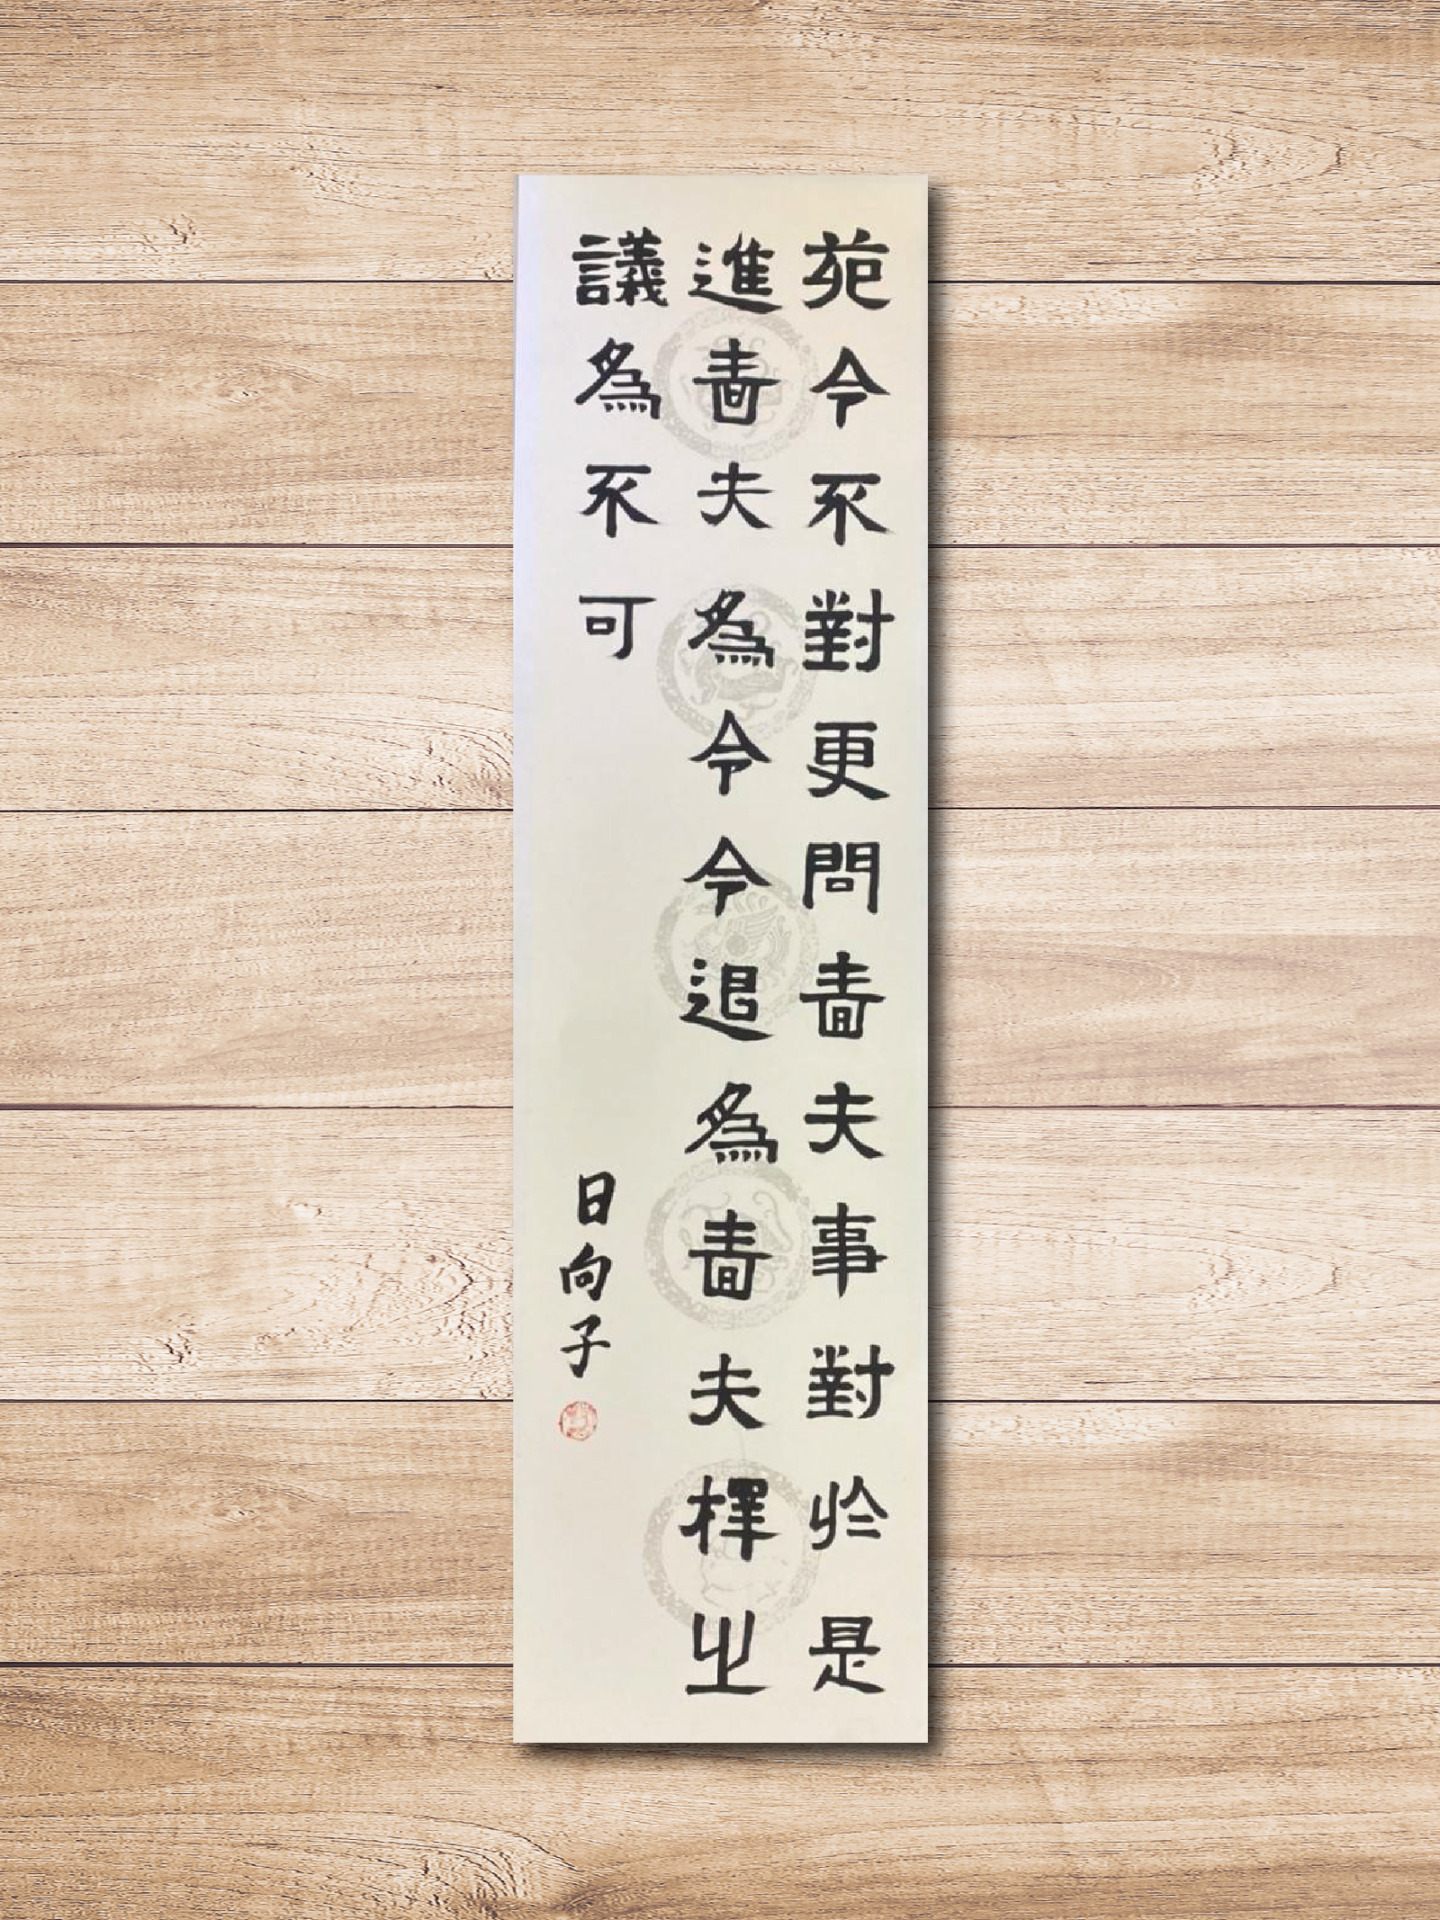 苑令不對更問嗇夫事對於是
進嗇夫為令令退為嗇夫釋之
議為不可
日向子